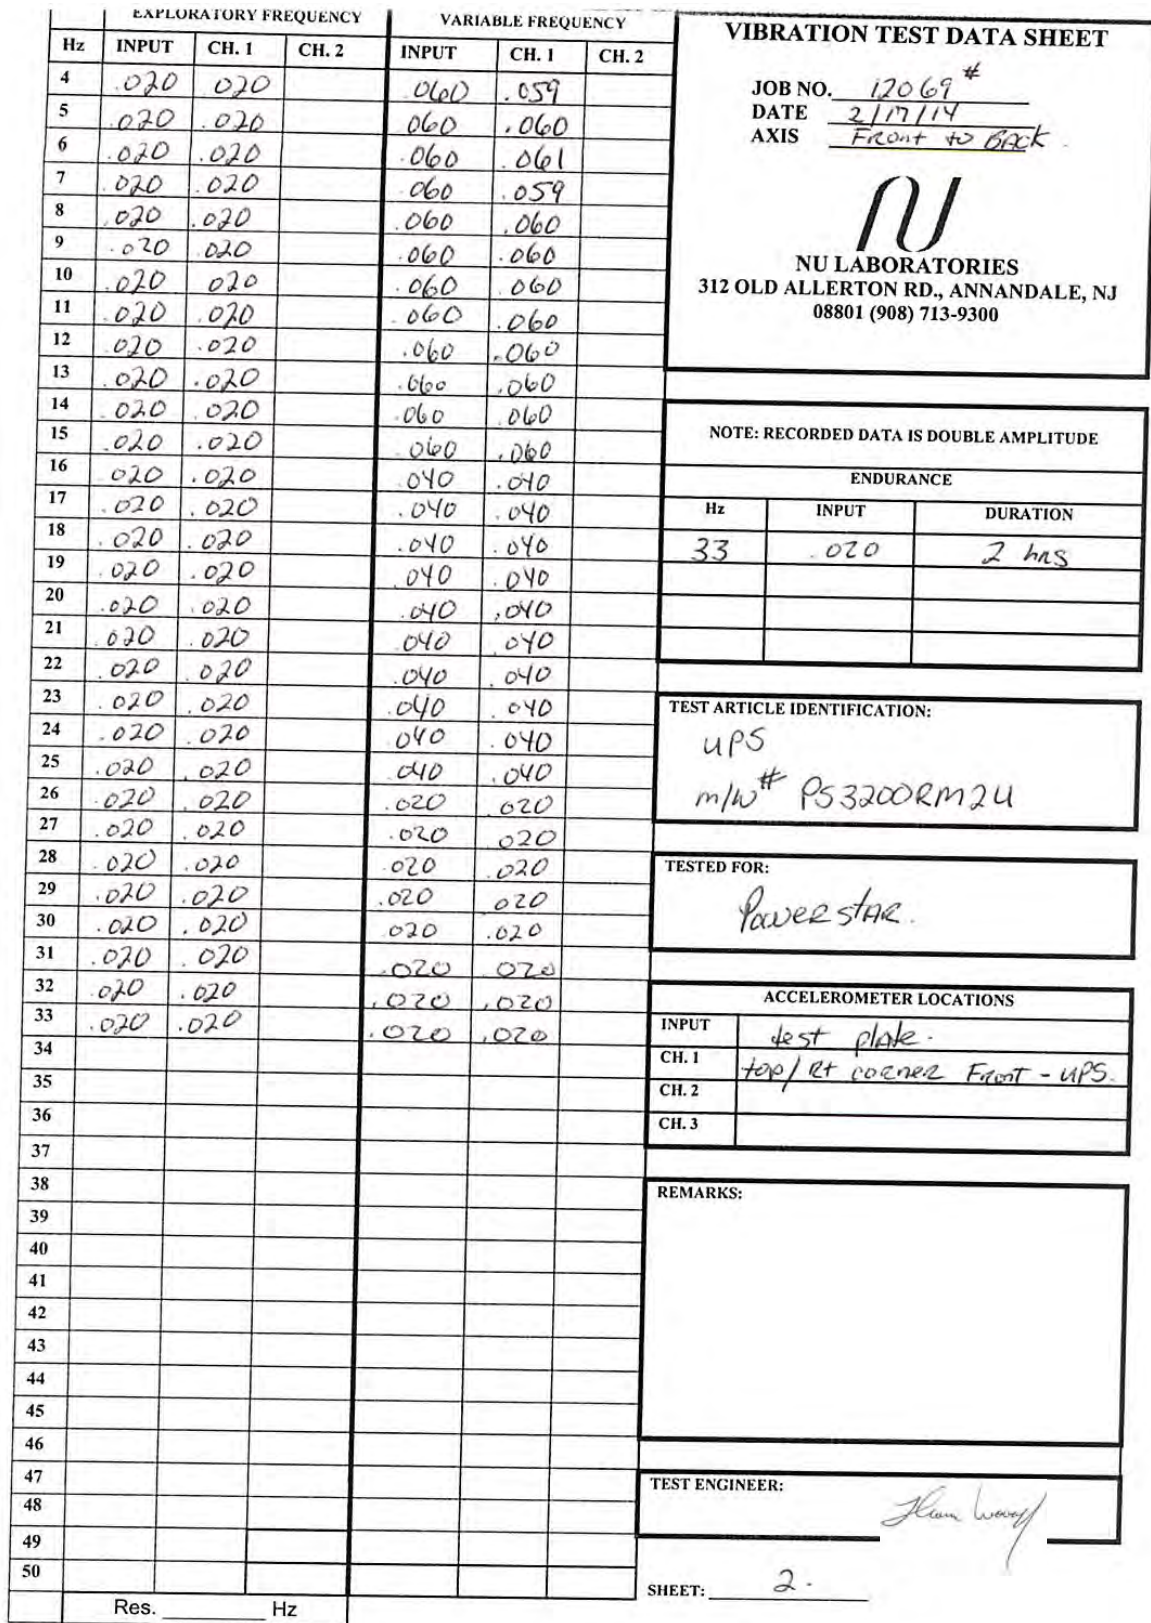 EXPLORATORY FREQUENCY VARIABLE FREQUENCY
Hz INPUT CH. 1 CH. 2 INPUT CH. 1 CH. 2
4 .020 020 .060 .059
5 .020 .020 060 .060
6 .020 .020 .060 .061
7 .020 .020 .060 .059
8 .020 .020 .060 .060
9 .020 020 .060 .060
10 .020 020 .060 .060
11 .020 .020 .060 .060
12 020 .020 .060 .060
13 .020 .020 .060 .060
14 .020 .020 .060 .060
15 .020 .020 .060 .060
16 020 .020 .040 .040
17 .020 .020 .040 .040
18 .020 .020 .040 .040
19 .020 .020 .040 .040
20 .020 .020 .040 .040
21 .020 .020 .040 .040
22 .020 .020 .040 .040
23 .020 .020 .040 .040
24 .020 .020 .040 .040
25 .020 .020 .040 .040
26 .020 .020 .020 .020
27 .020 .020 .020 .020
28 .020 .020 .020 .020
29 .020 .020 .020 020
30 .020 .020 .020 .020
31 .020 .020 .020 .020
32 .020 .020 .020 .020
33 .020 .020 .020 .020
34
35
36
37
38
39
40
41
42
43
44
45
46
47
48
49
50
Res. ________ Hz
VIBRATION TEST DATA SHEET
JOB NO. 12069 #
DATE 2/17/14
AXIS Front to BACK.
NU LABORATORIES
312 OLD ALLERTON RD., ANNANDALE, NJ
08801 (908) 713-9300
NOTE: RECORDED DATA IS DOUBLE AMPLITUDE
ENDURANCE
Hz INPUT DURATION
33 .020 2 hrs
TEST ARTICLE IDENTIFICATION:
UPS
m/w# PS3200RM2U
TESTED FOR:
PowerstAR.
ACCELEROMETER LOCATIONS
INPUT test plate.
CH. 1 top/Rt corner Front - UPS.
CH. 2
CH. 3
REMARKS:
TEST ENGINEER:
SHEET: 2.